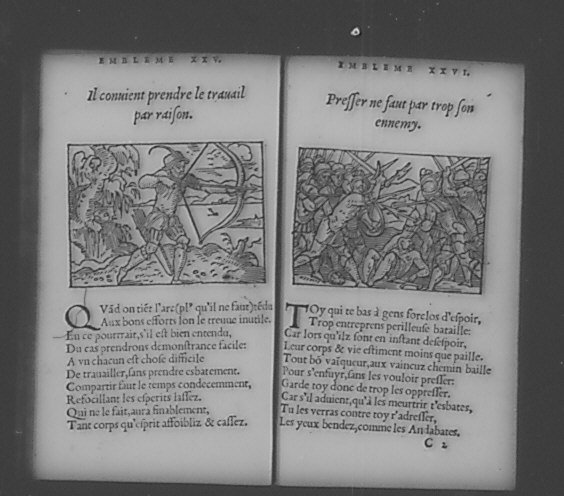 EMBLEME XXV.
Il conuient prendre le trauail
par raison.
QVãd on tiẽt l'arc (plꝰ qu'il ne faut) tẽdu
Aux bons efforts lon le treuue inutile.
En ce pourtrait, s'il est bien entendu,
Du cas prendrons demonstrance facile:
A vn chacun est chose difficile
De trauailler, sans prendre esbatement.
Compartir faut le temps condecemment,
Refocillant les esperits lassez.
Qui ne le fait, aura finablement,
Tant corps qu'esprit affoibliz & cassez.
EMBLEME XXVI.
Presser ne faut par trop son
ennemy.
TOy qui te bas à gens forclos d'espoir,
Trop entreprens perilleuse bataille:
Car lors qu'ilz sont en instant desespoir,
Leur corps & vie estiment moins que paille.
Tout bõ vaĩqueur, aux vaincuz chemin baille
Pour s'enfuyr, sans les vouloir presser:
Garde toy donc de trop les oppresser.
Car s'il aduient, qu'à les meurtrir t'esbates,
Tu les verras contre toy r'adresser,
Les yeux bendez, comme les Andabates.
C 2